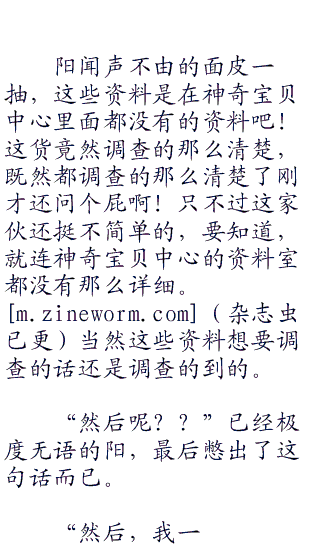 阳闻声不由的面皮一
抽，这些资料是在神奇宝贝
中心里面都没有的资料吧！
这货竟然调查的那么清楚，
既然都调查的那么清楚了刚
才还问个屁啊！只不过这家
伙还挺不简单的，要知道，
就连神奇宝贝中心的资料室
都没有那么详细。
[m.zineworm.com]（杂志虫
已更）当然这些资料想要调
查的话还是调查的到的。
“然后呢？？”已经极
度无语的阳，最后憋出了这
句话而已。
“然后，我一